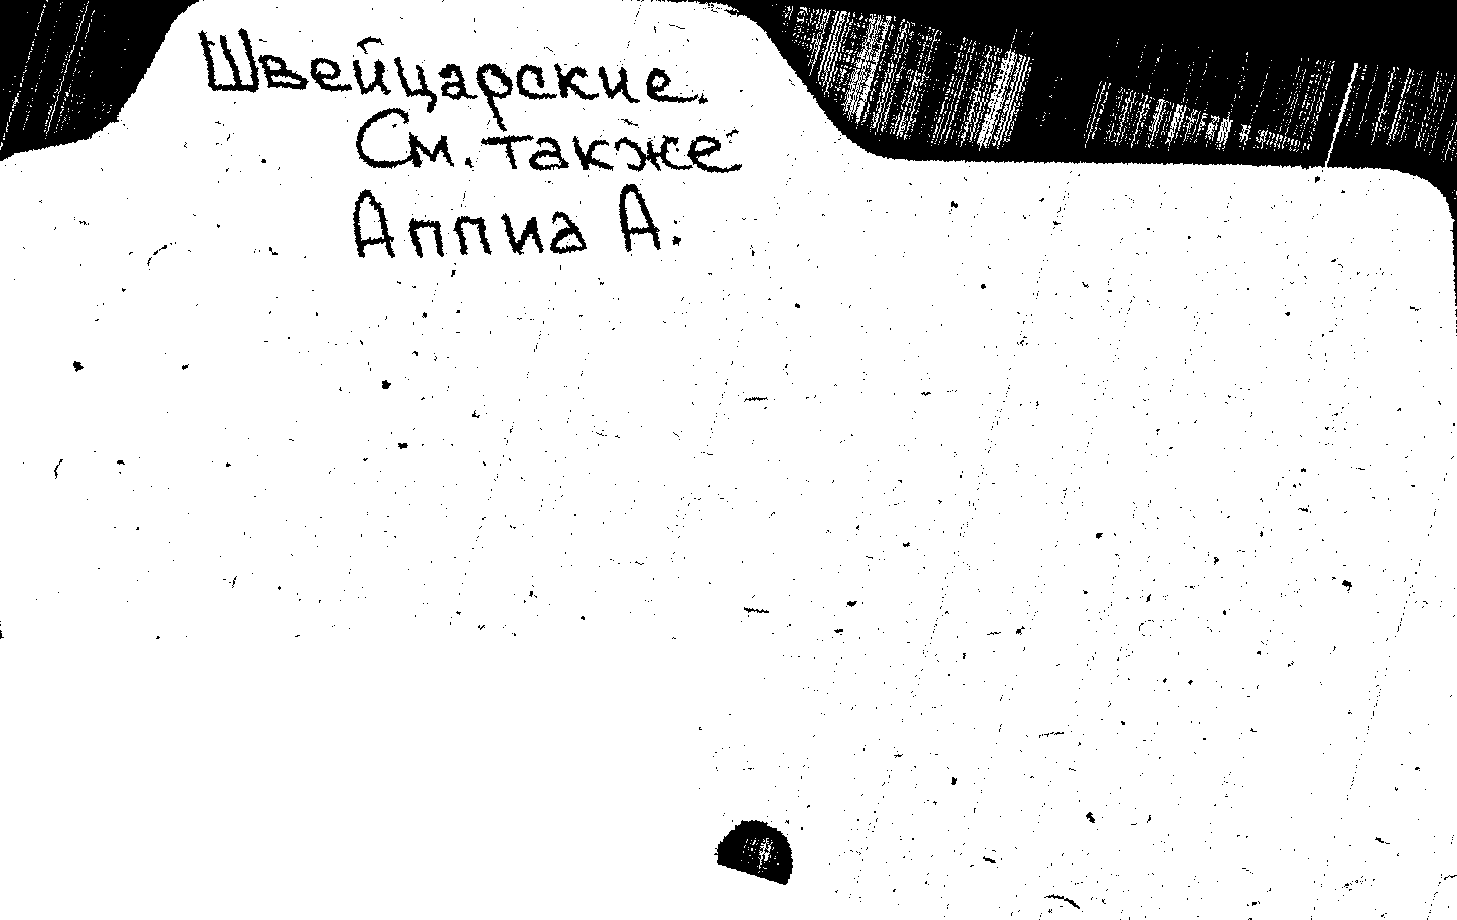 Швейцарские.
См. также
Аппиа А.